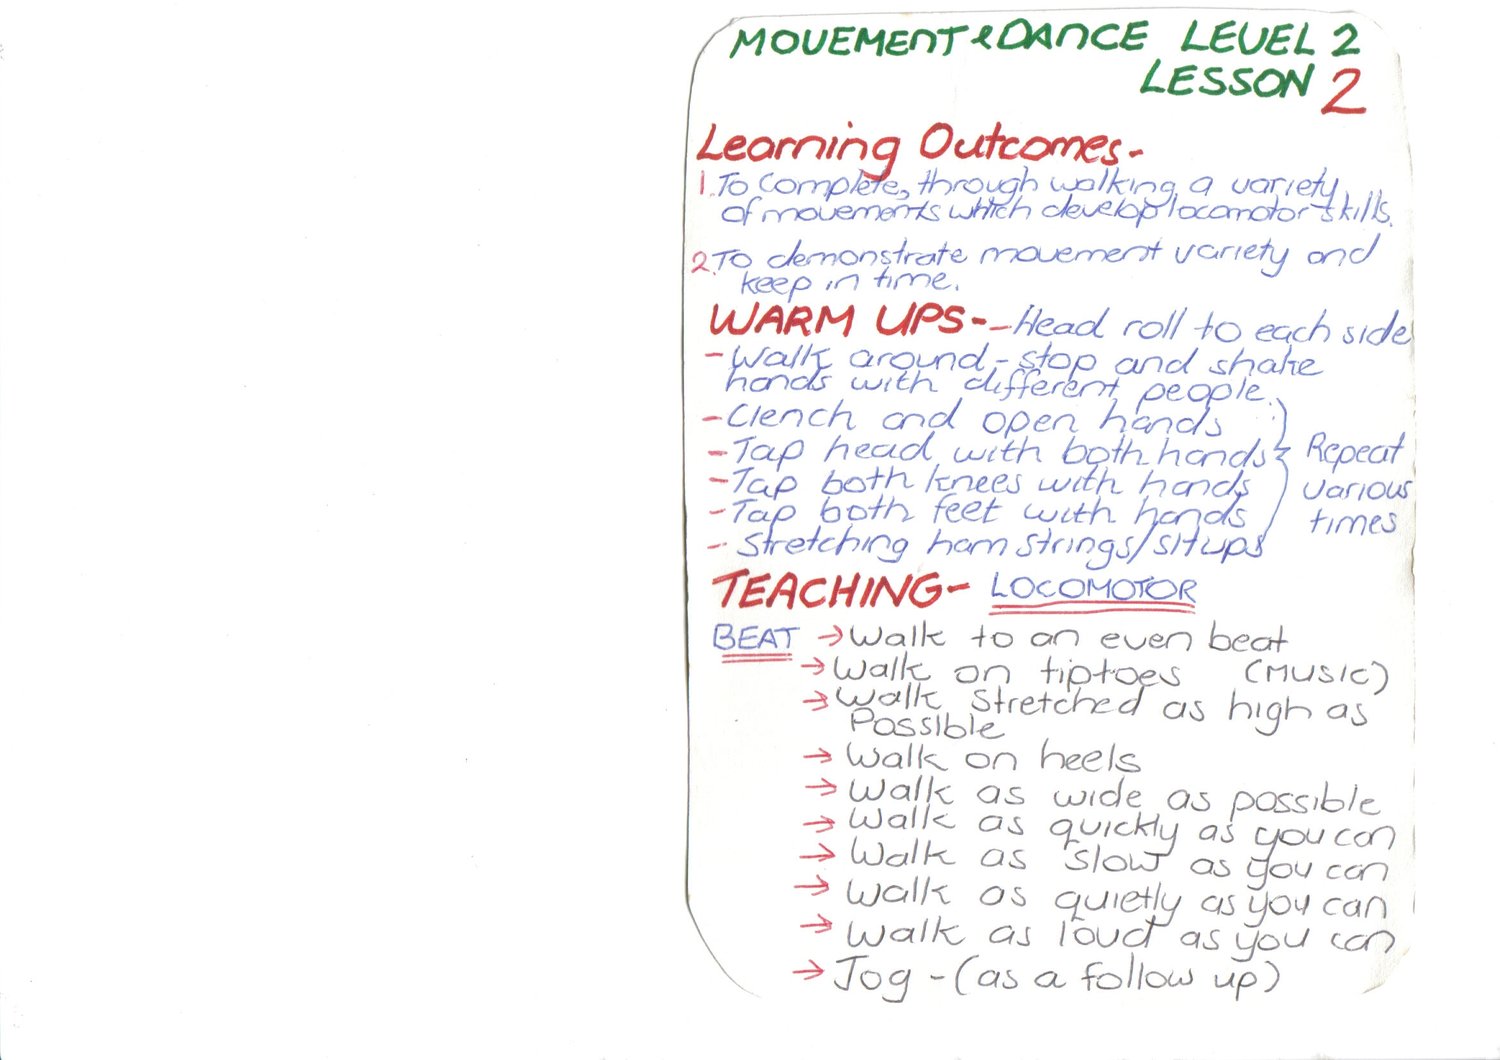 MOVEMENT & DANCE LEVEL 2
LESSON 2
Learning Outcomes-
1. To complete, through walking, a variety
of movements which develop locomotor skills.
2. To demonstrate movement variety and
keep in time.
WARM UPS- - Head roll to each side
- Walk around - stop and shake
hands with different people.
- Clench and open hands
- Tap head with both hands
- Tap both knees with hands
- Tap both feet with hands
- Stretching ham strings/situps
Repeat
various
times
TEACHING- LOCOMOTOR
BEAT → Walk to an even beat
→ Walk on tiptoes (MUSIC)
→ Walk stretched as high as
Possible
→ Walk on heels
→ Walk as wide as possible
→ Walk as quickly as you can
→ Walk as slow as you can
→ Walk as quietly as you can
→ Walk as loud as you can
→ Jog - (as a follow up)